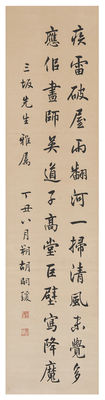 疾雷破屋雨翻河一掃清風未覺多
應似畫師吳道子高堂巨壁寫降魔
三坂先生雅屬
丁丑八月朔胡嗣瑗